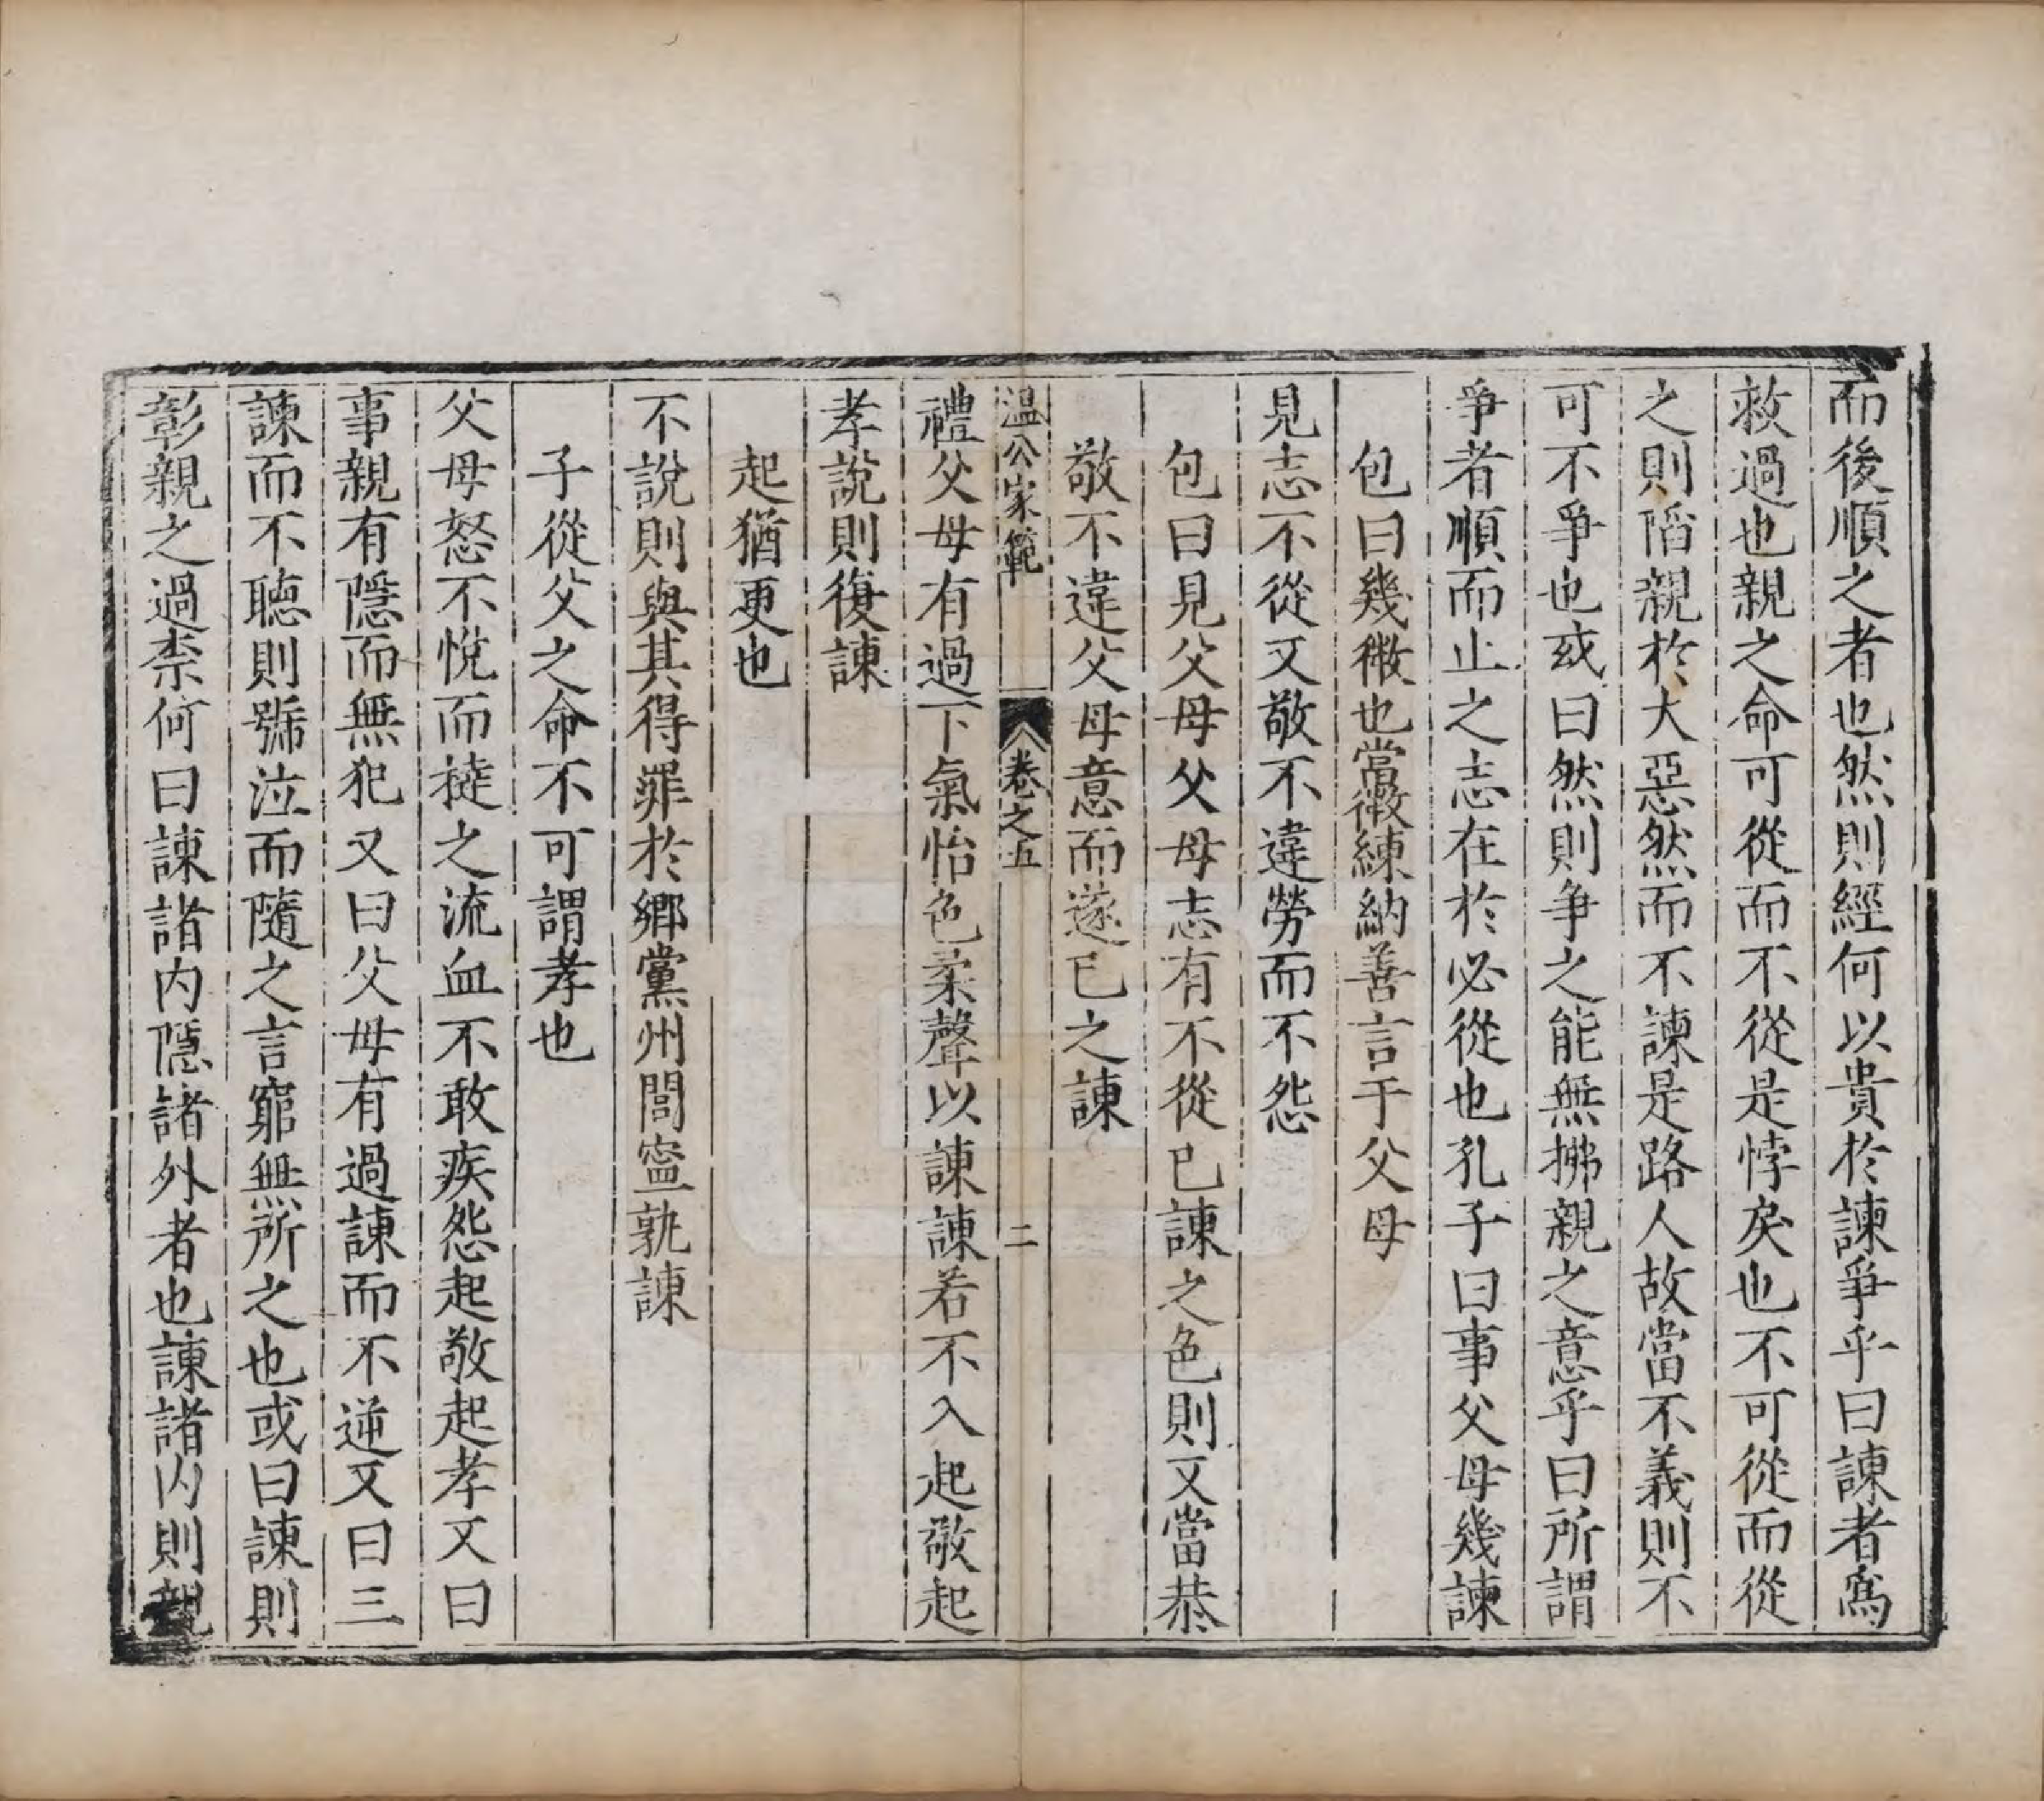 而後順之者也然則經何以貴於諫爭乎曰諫者爲
救過也親之命可從而不從是悖戾也不可從而從
之則陷親於大惡然而不諫是路人故當不義則不
可不爭也或曰然則爭之能無拂親之意乎曰所謂
爭者順而止之志在於必從也孔子曰事父母幾諫
包曰幾微也當微諫納善言于父母
見志不從又敬不違勞而不怨
包曰見父母父母志有不從已諫之色則又當恭
敬不違父母意而遂已之諫
溫公家範
卷之五
二
禮父母有過下氣怡色柔聲以諫諫若不入起敬起
孝說則復諫
起猶更也
不說則與其得罪於鄉黨州閭寧孰諫
子從父之命不可謂孝也
父母怒不悅而撻之流血不敢疾怨起敬起孝又曰
事親有隱而無犯又曰父母有過諫而不逆又曰三
諫而不聽則號泣而隨之言窮無所之也或曰諫則
彰親之過柰何曰諫諸内隱諸外者也諫諸内則親